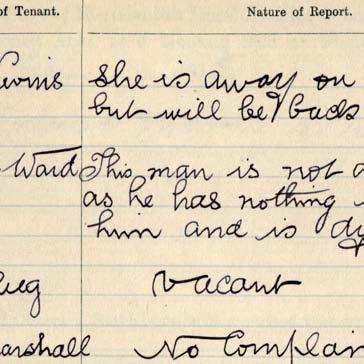 of Tenant. Nature of Report.
she is away on
but will be back
Ward This man is not a
as he has nothing
him and is
Vacant
arshall No Complain